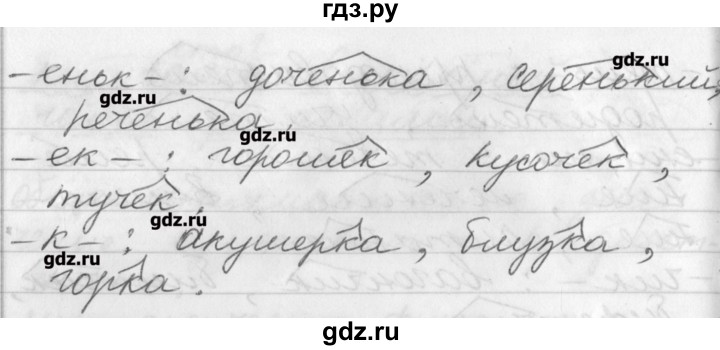 гдз.ру
-еньк-: доченька, серенький,
gdz.ru
gdz.ru
реченька.
gdz.ru
-ек-: горошек, кусочек,
gdz.ru
тучек.
gdz.ru
-к-: акушерка, блузка,
gdz.ru
горка.
gdz.ru